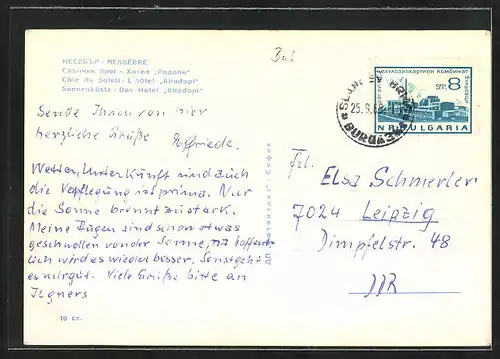 НЕСЕБЪР - NESSÈBRE
Слънчев бряг - Хотел „Родопи"
Côte du Soleil - L'hôtel „Rhodopi"
Sonnenküste - Das Hotel „Rhodopi"
Bul
Sende Ihnen von hier
herzliche Grüße
Elfriede.
Wetter, Unterkunft sind auch
die Verpflegung ist prima. Nur
die Sonne brennt zu stark.
Meine Augen sind schon etwas
geschwollen von der Sonne, na hoffent-
lich wird es wieder besser. Sonst geht
es mir gut. Viele Grüße bitte an
Ilgners
10 ст.
ДП „Фотоиздат" - София
целулозохартиен комбинат
СТР. 8
NR BULGARIA
25.9.6
BURGAS
Frl.
Elsa Schmerler
7024 Leipzig
Dimpfelstr. 48
DDR